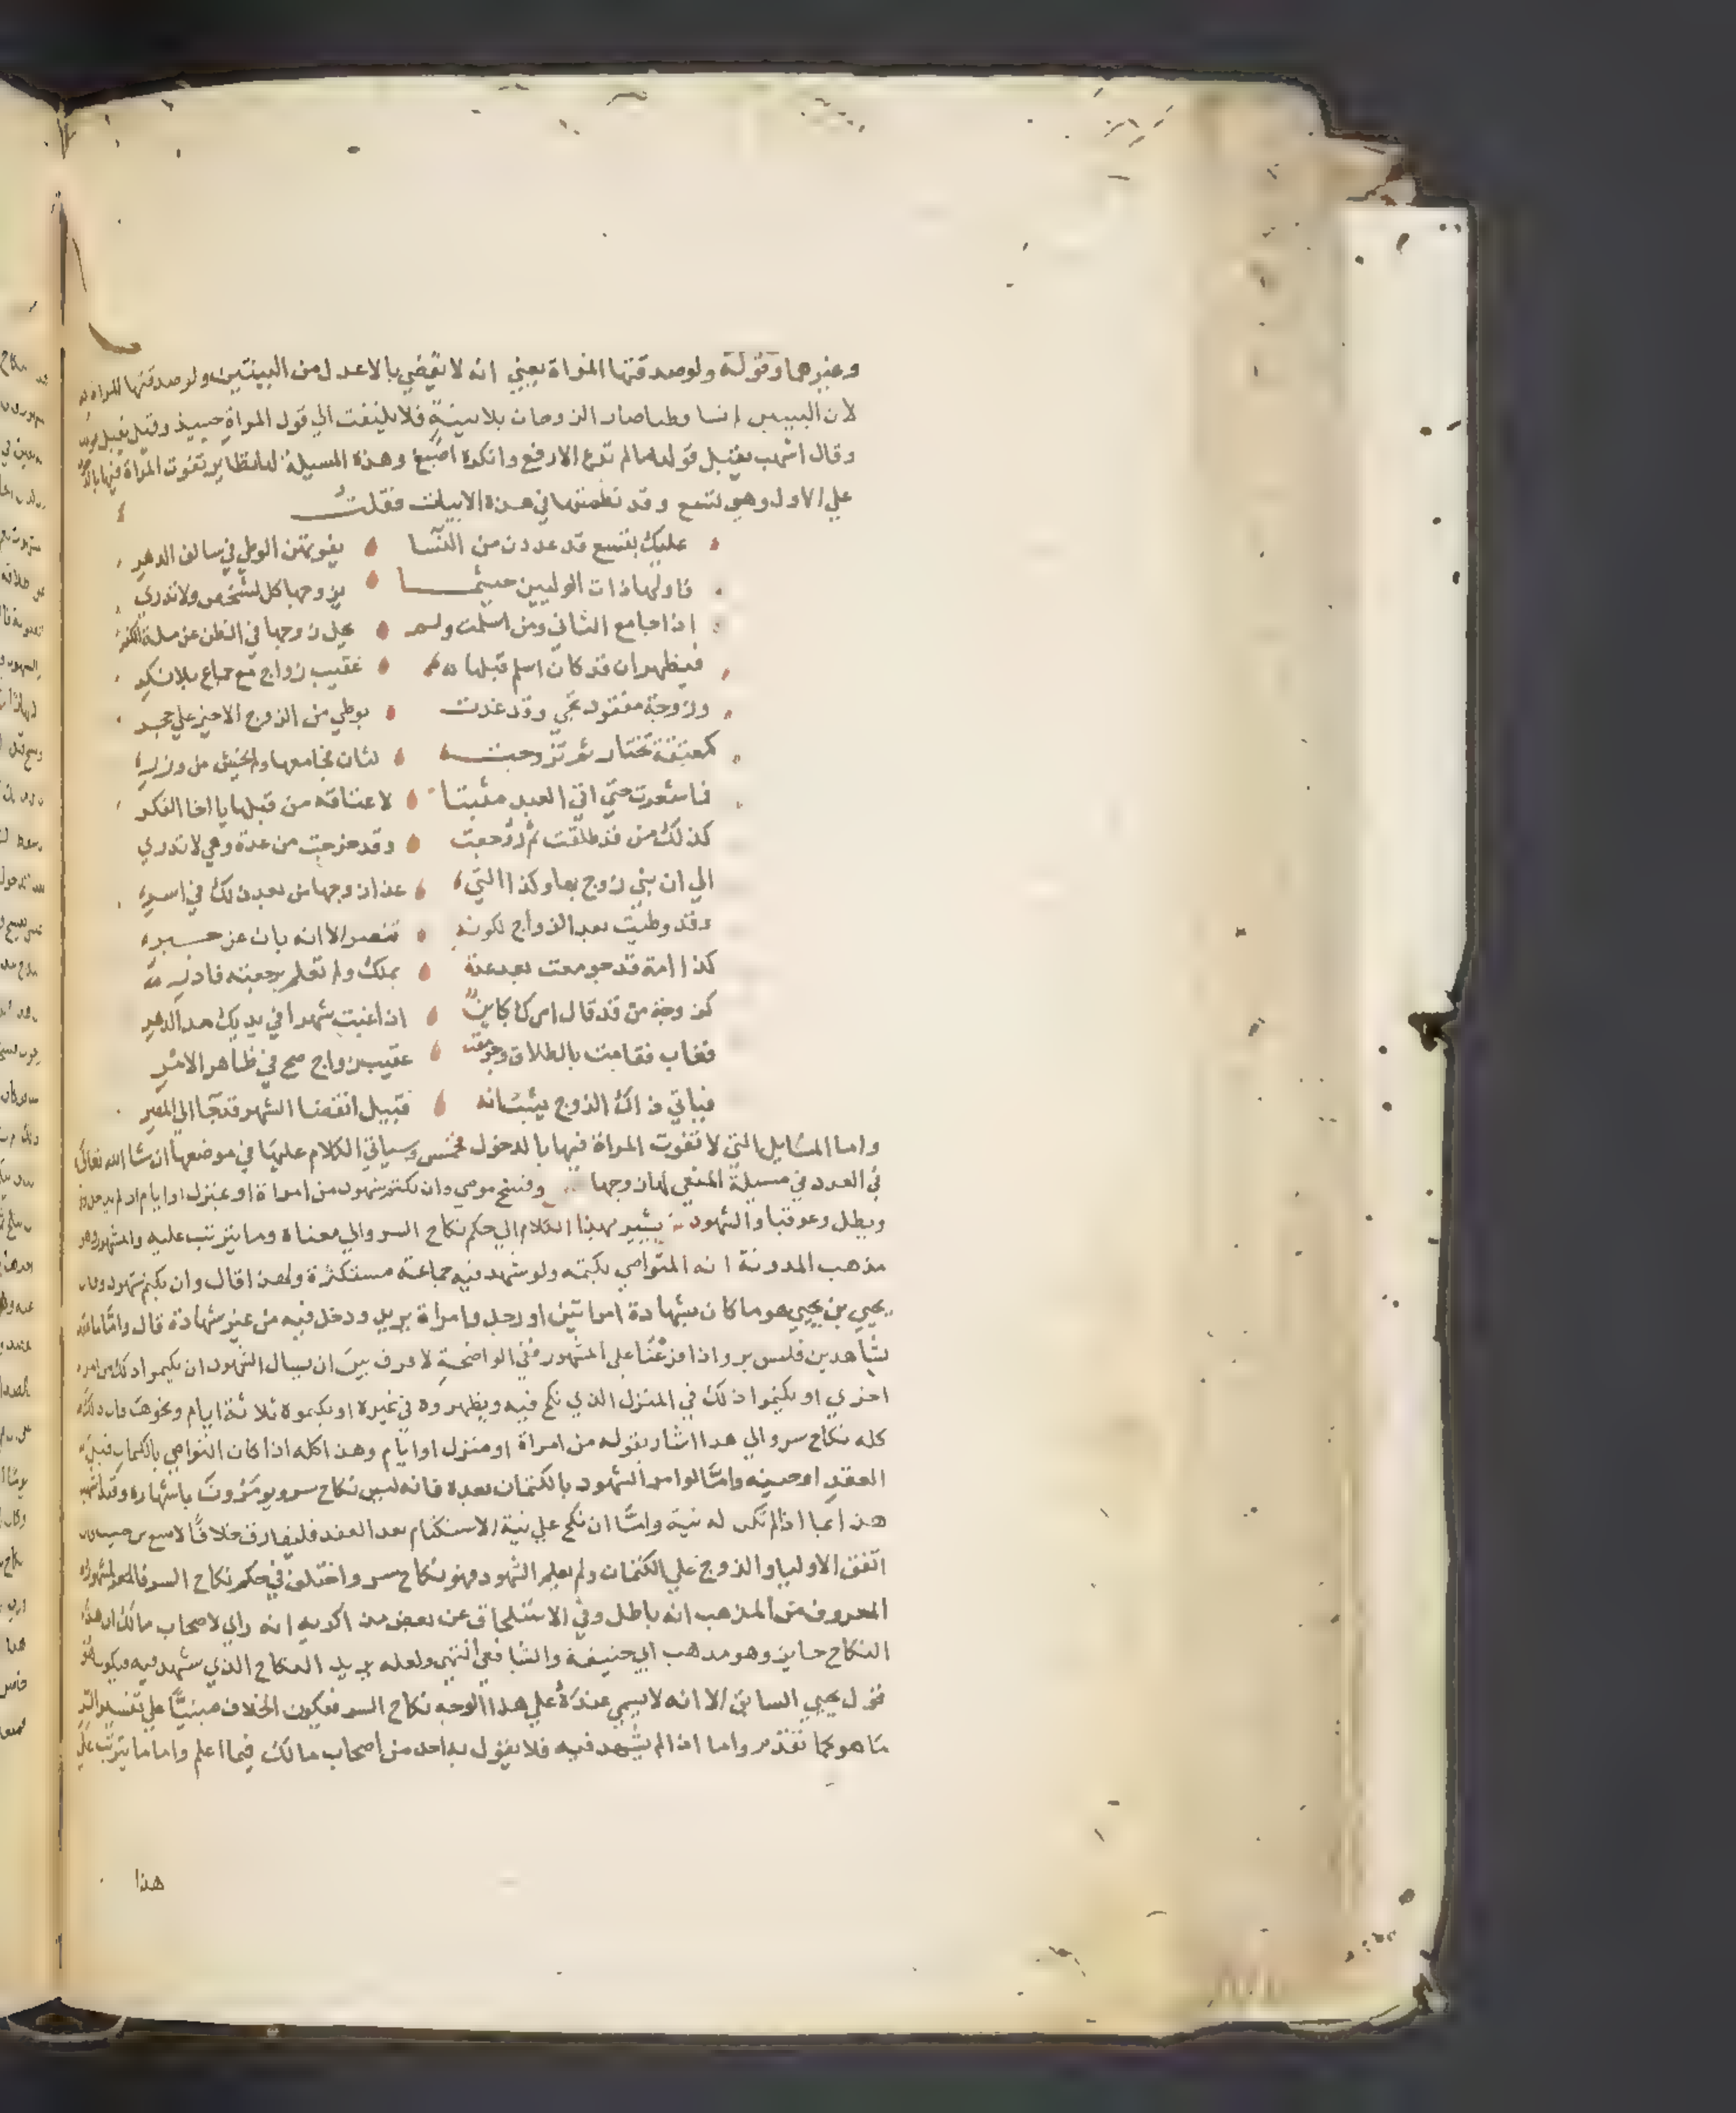 وغيرهما وقوله ولو صدقتها المراة يعني انه لا يقضي بالاعدل من البينتين ولو صدقتها المراة
لان البينتين لما صار الزوجان بلا بينة فلا يلتفت الي قول المراة حينيذ وقيل يقبل
وقال اشهب يقبل قولها ما لم تدع الارفع وانكره اصبغ وهذه المسيلة لها نظاير تفوت المراة فيها
علي الاول وهي تسع وقد نظمتها في هذه الابيات فقلت
عليك بتسع قد عددن من النسا يفوتهن الوطي في سالف الدهر
فاولها ذات الوليين حيثما يزوجها كل لشخص ولا تدري
اذا جامع الثاني ومن اسلمت ولم يحل زوجها في الظن عن ملة الكفر
فيظهر ان قد كان اسلم قبلها عقيب زواج مع جماع بلا نكر
وزوجة مفقود يجي وقد غدت بوطي من الزوج الاخير علي حجر
كمعتقة تختار ثم تزوجت لثان يجامعها ولم يخش من وزر
فما شعرت حتي اتي العبد مثبتا لاعتاقه من قبلها يا اخا الفكر
كذلك من قد طلقت ثم روجعت وقد خرجت من عدة وهي لا تدري
الي ان بني زوج بها وكذا التي غدا زوجها من بعد ذلك في اسر
وقد وطيت بعد الزواج لكونه تنصر الا انه بان عن جبر
كذا امة قد جومعت بعد عدة بملك ولم تعلم برجعته فادر
كزوجة من قد قال امرك كاين اذا غبت شهرا في يديك مدا الدهر
فغاب فقامت بالطلاق وجومعت عقيب زواج صح في ظاهر الامر
فياتي ذاك الزوج يثبت انه قبيل انقضا الشهر قد جا الي المصر
واما المسايل التي لا تفوت المراة فيها بالدخول فخمس وسياتي الكلام عليها في موضعها ان شا الله تعالي
في العدد في مسيلة المنعي لها زوجها وفسخ موصي وان بكتم شهود من امراة او منزل او ايام ان لم يدخل
ويطل وعوقبا والشهود يشير بهذا الكلام الي حكم نكاح السر والي معناه وما يترتب عليه والمشهور وهو
مذهب المدونة انه المتواصي بكتمه ولو شهد فيه جماعة مستكثرة ولهذا قال وان بكتم شهود وقال
يحيي بن يحيي هو ما كان بشهادة امراتين او رجل وامراة يريد ودخل فيه من غير شهادة قال واما ما عقد
بشاهدين فليس بسر واذا فرعنا علي المشهور ففي الواضحة لا فرق بين ان يسال الشهود ان يكتموا ذلك من امراة
اخري او يكتموا ذلك في المنزل الذي نكح فيه ويظهروه في غيره او يكتموه ثلاثة ايام ونحوها فان ذلك
كله نكاح سر والي هذا اشار بقوله من امراة او منزل او ايام وهذا كله اذا كان التواصي بالكتمان قبل
العقد او حينه واما لو امر الشهود بالكتمان بعده فانه ليس نكاح سر ويومرون باشهاره وقال اشهب
هذا انما اذا لم تكن له نية واما ان نكح علي نية الاستكتام بعد العقد فليفارق خلافا لاصبغ
اتفق الاوليا والزوج علي الكتمان ولم يعلم الشهود فهو نكاح سر واختلف في حكم نكاح السر فالمشهور
المعروف من المذهب انه باطل وفي الاستلحاق عن بعض من اكريه انه راي لاصحاب مالك ان هذا
النكاح جايز وهو مذهب ابي حنيفة والشافعي انتهي ولعله يريد النكاح الذي شهد فيه فيكون هو
قول يحيي السابق الا انه لا يسمي عنده علي هذا الوجه نكاح السر فيكون الخلاف مبنيا علي تفسير السر
ما هو كما تقدم واما اذا لم يشهد فيه فلا يقول به احد من اصحاب مالك فيما اعلم واما ما يترتب علي
هذا